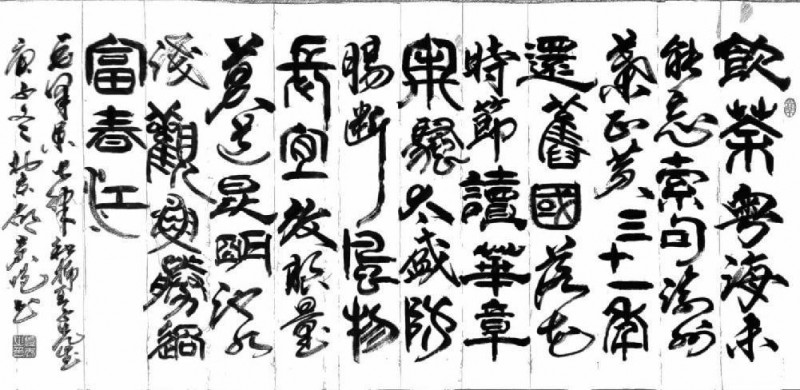 飲茶粤海未
能忘索句渝州
葉正黃三十一年
還舊國落花
時節讀華章
牢騷太盛防
腸斷風物
長宜放眼量
莫道昆明池水
淺觀魚勝過
富春江
毛澤東七律和柳亞子先生
庚子冬 书